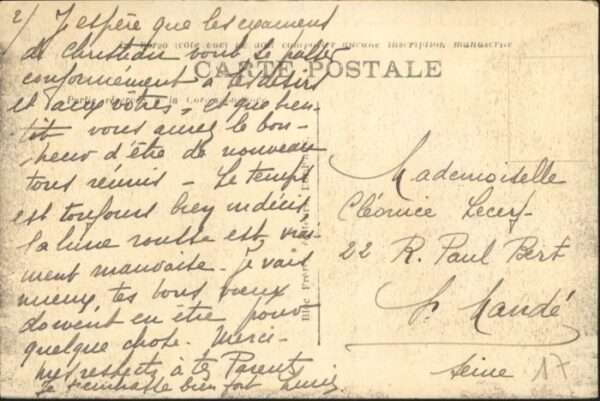 2/ J'espère que les examens
de Christian vont se passer
conformément à tes désirs
et aux vôtres, et que bien-
tôt vous aurez le bon-
heur d'être de nouveau
tous réunis - Le temps
est toujours bien indécis
la lune rousse est vrai-
ment mauvaise. Je vais
mieux, tes bons vœux
doivent en être pour
quelque chose. Merci -
mes respects à tes Parents
Je t'embrasse bien fort
CARTE POSTALE
Mademoiselle
Cléonice Lecerf
22 R. Paul Bert
St Mandé
Seine
17